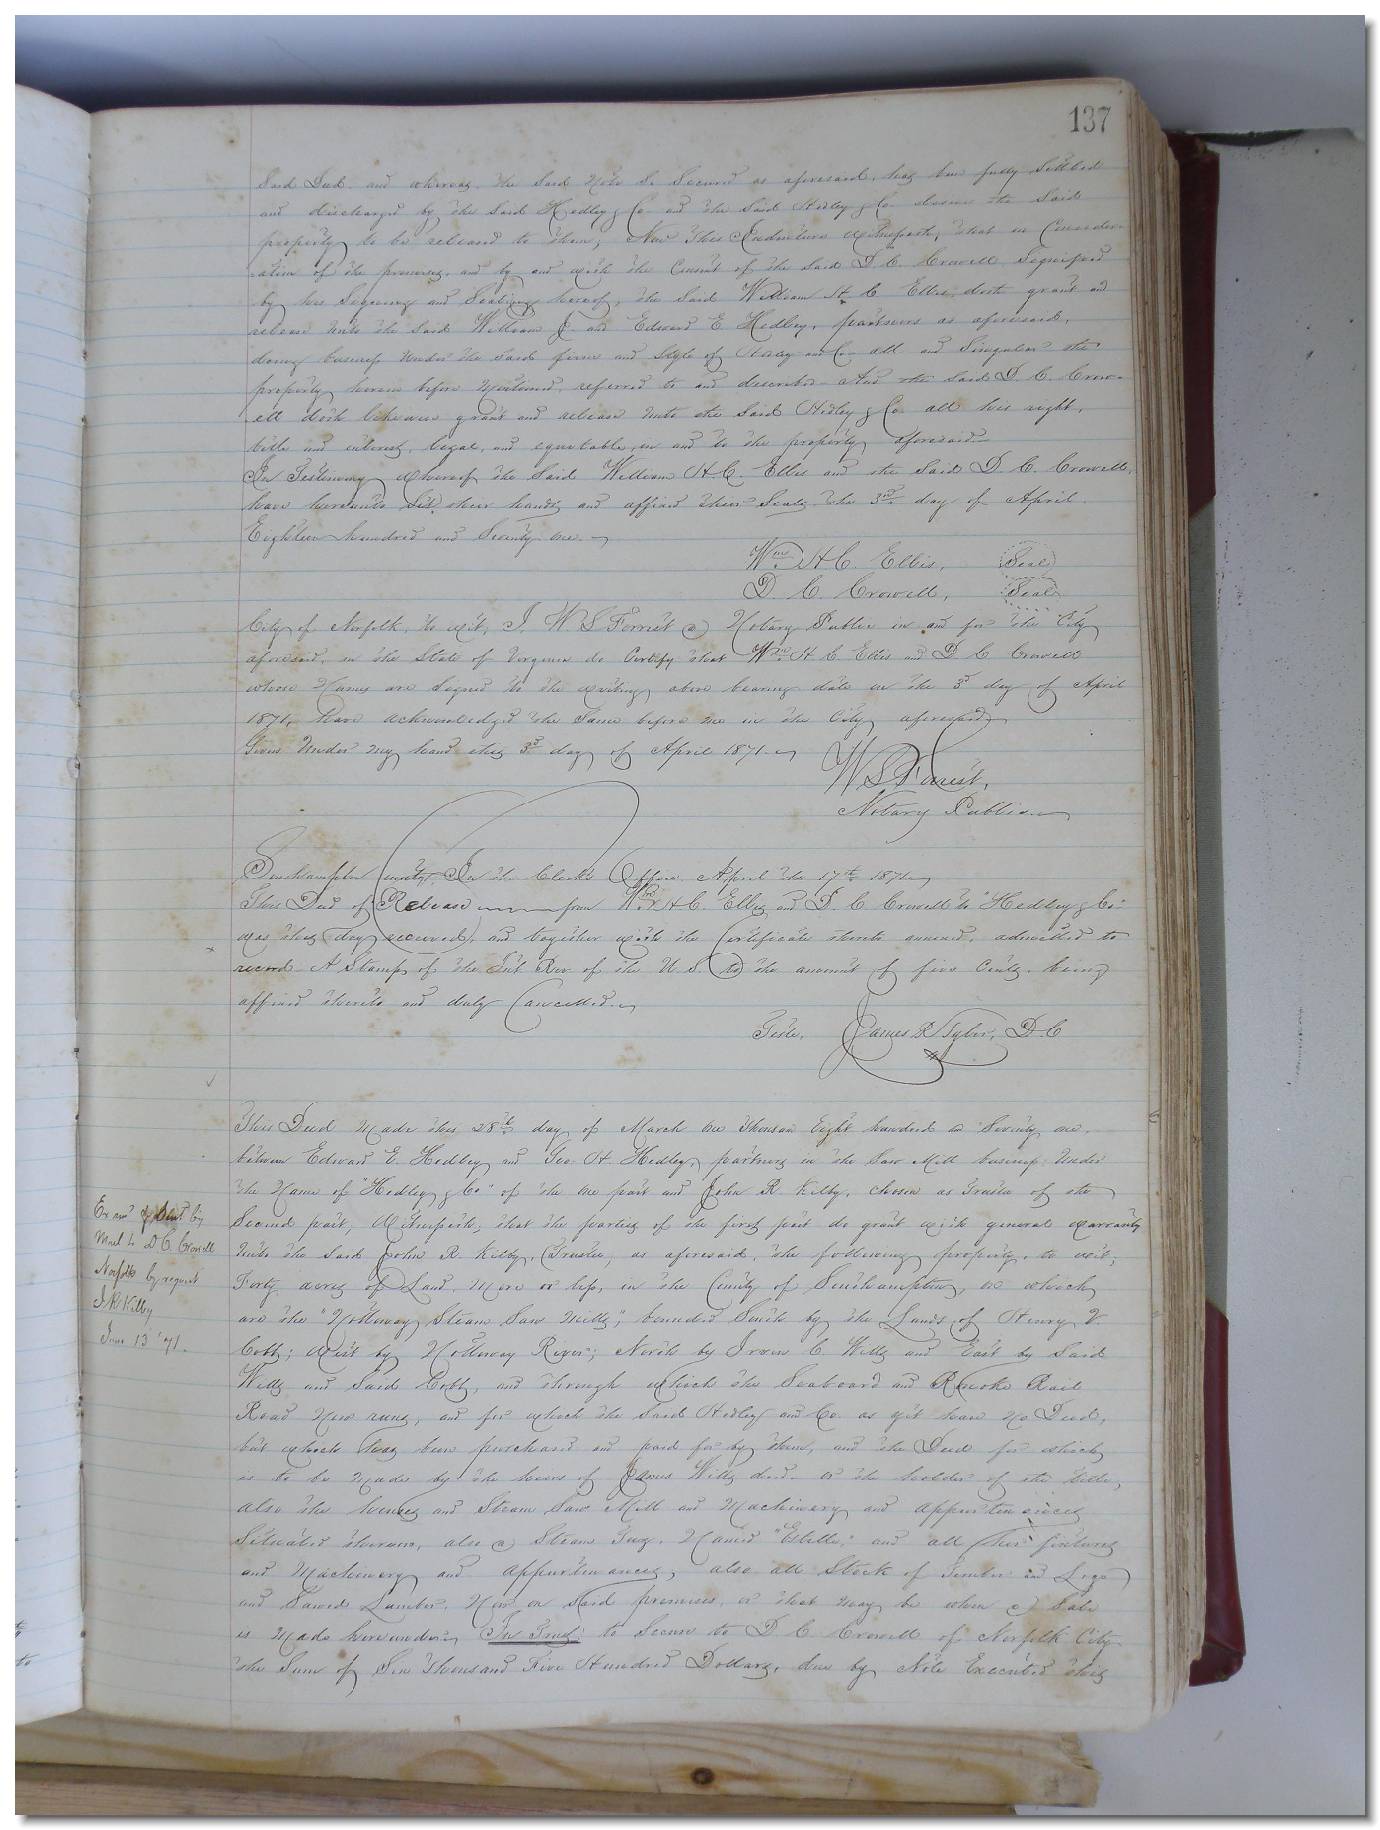 137
Said Deed. and whereas, the said Note so Secured as aforesaid, has been fully Settled
and discharged by the said Hedley & Co. and the said Hedley & Co. desire the said
property to be released to them, Now This Indenture Witnesseth, that in Consider-
ation of the premises, and by and with the Consent of the said D. C. Crowell Signified
by his Signing and Sealing hereof, the said William H. C. Ellis, doth grant and
release unto the said William J. and Edward E Hedley, partners as aforesaid,
doing business under the said firm and Style of Hedley and Co all and Singular the
property herein before Mentioned, referred to and described. And the said D. C. Crow-
ell doth likewise grant and release unto the said Hedley & Co. all his right,
title and interest, legal, and equitable, in and to the property aforesaid
In Testimony Whereof the said William H. C. Ellis and the said D. C. Crowell,
have hereunto Set their hands and affixed their Seals the 3rd day of April
Eighteen hundred and Seventy one.
Wm H C. Ellis, Seal
D. C. Crowell, Seal
City of Norfolk, to wit, I, W S Forrest a Notary Public in and for the City
aforesaid, in the State of Virginia do Certify that Wm H C Ellis and D C Crowell
whose Names are Signed to the writing above bearing date on the 3d day of April
1871, have acknowledged the Same before me in the City aforesaid
Given Under My hand this 3d day of April 1871.
W S Forrest,
Notary Public.
Southampton County, In the Clerks Office April the 17th 1871
This Deed of Release from Wm H C. Ellis and D. C Crowell to "Hedley & Co."
was this day received, and together with the Certificate thereto annexed, admitted to
record. A Stamp of the Int Rev. of the U. S. to the amount of five Cents being
affixed thereto and duly Cancelled.
Teste, James R Tyler, D. C
This Deed Made this 28th day of March One Thousan Eight hundred and Seventy one,
between Edward E. Hedley and Geo. H. Hedley, partners in the Saw Mill business Under
the Name of "Hedley & Co" of the one part and John R Kilby, chosen as Trustee of the
Second part, Witnesseth, that the parties of the first part do grant with general warranty
Unto the said John R. Kilby, Trustee, as aforesaid, the following property, to wit,
Forty acres of Land, More or less, in the County of Southampton, on which
are the "Nottoway Steam Saw Mills", bounded South by the Lands of Henry V.
Cobb; West by Nottoway River; North by Irvin C Wills and East by Said
Wills and Said Cobb, and through which the Seaboard and Roanoke Rail
Road Now runs, and for which the said Hedley and Co. as yet have No Deed,
but which has been purchased and paid for by them, and the Deed for which
is to be Made by the heirs of James Wills decd. or the holder of the title,
also the houses and Steam Saw Mill and Machinery and appurtenances
Situated thereon, also a Steam Tug, Named "Estelle," and all her fixtures
and Machinery and appurtenances, also all Stock of Timber and Logs
and Sawed Lumber, Now on Said premises, or that may be when a Sale
is Made hereunder, In Trust to Secure to D C Crowell of Norfolk City
the Sum of Six Thousand Five Hundred Dollars, due by Note Executed this
Exd & Delt by
Mail to D C. Crowell
Norfolk by request
J R Kilby
June 13 '71.